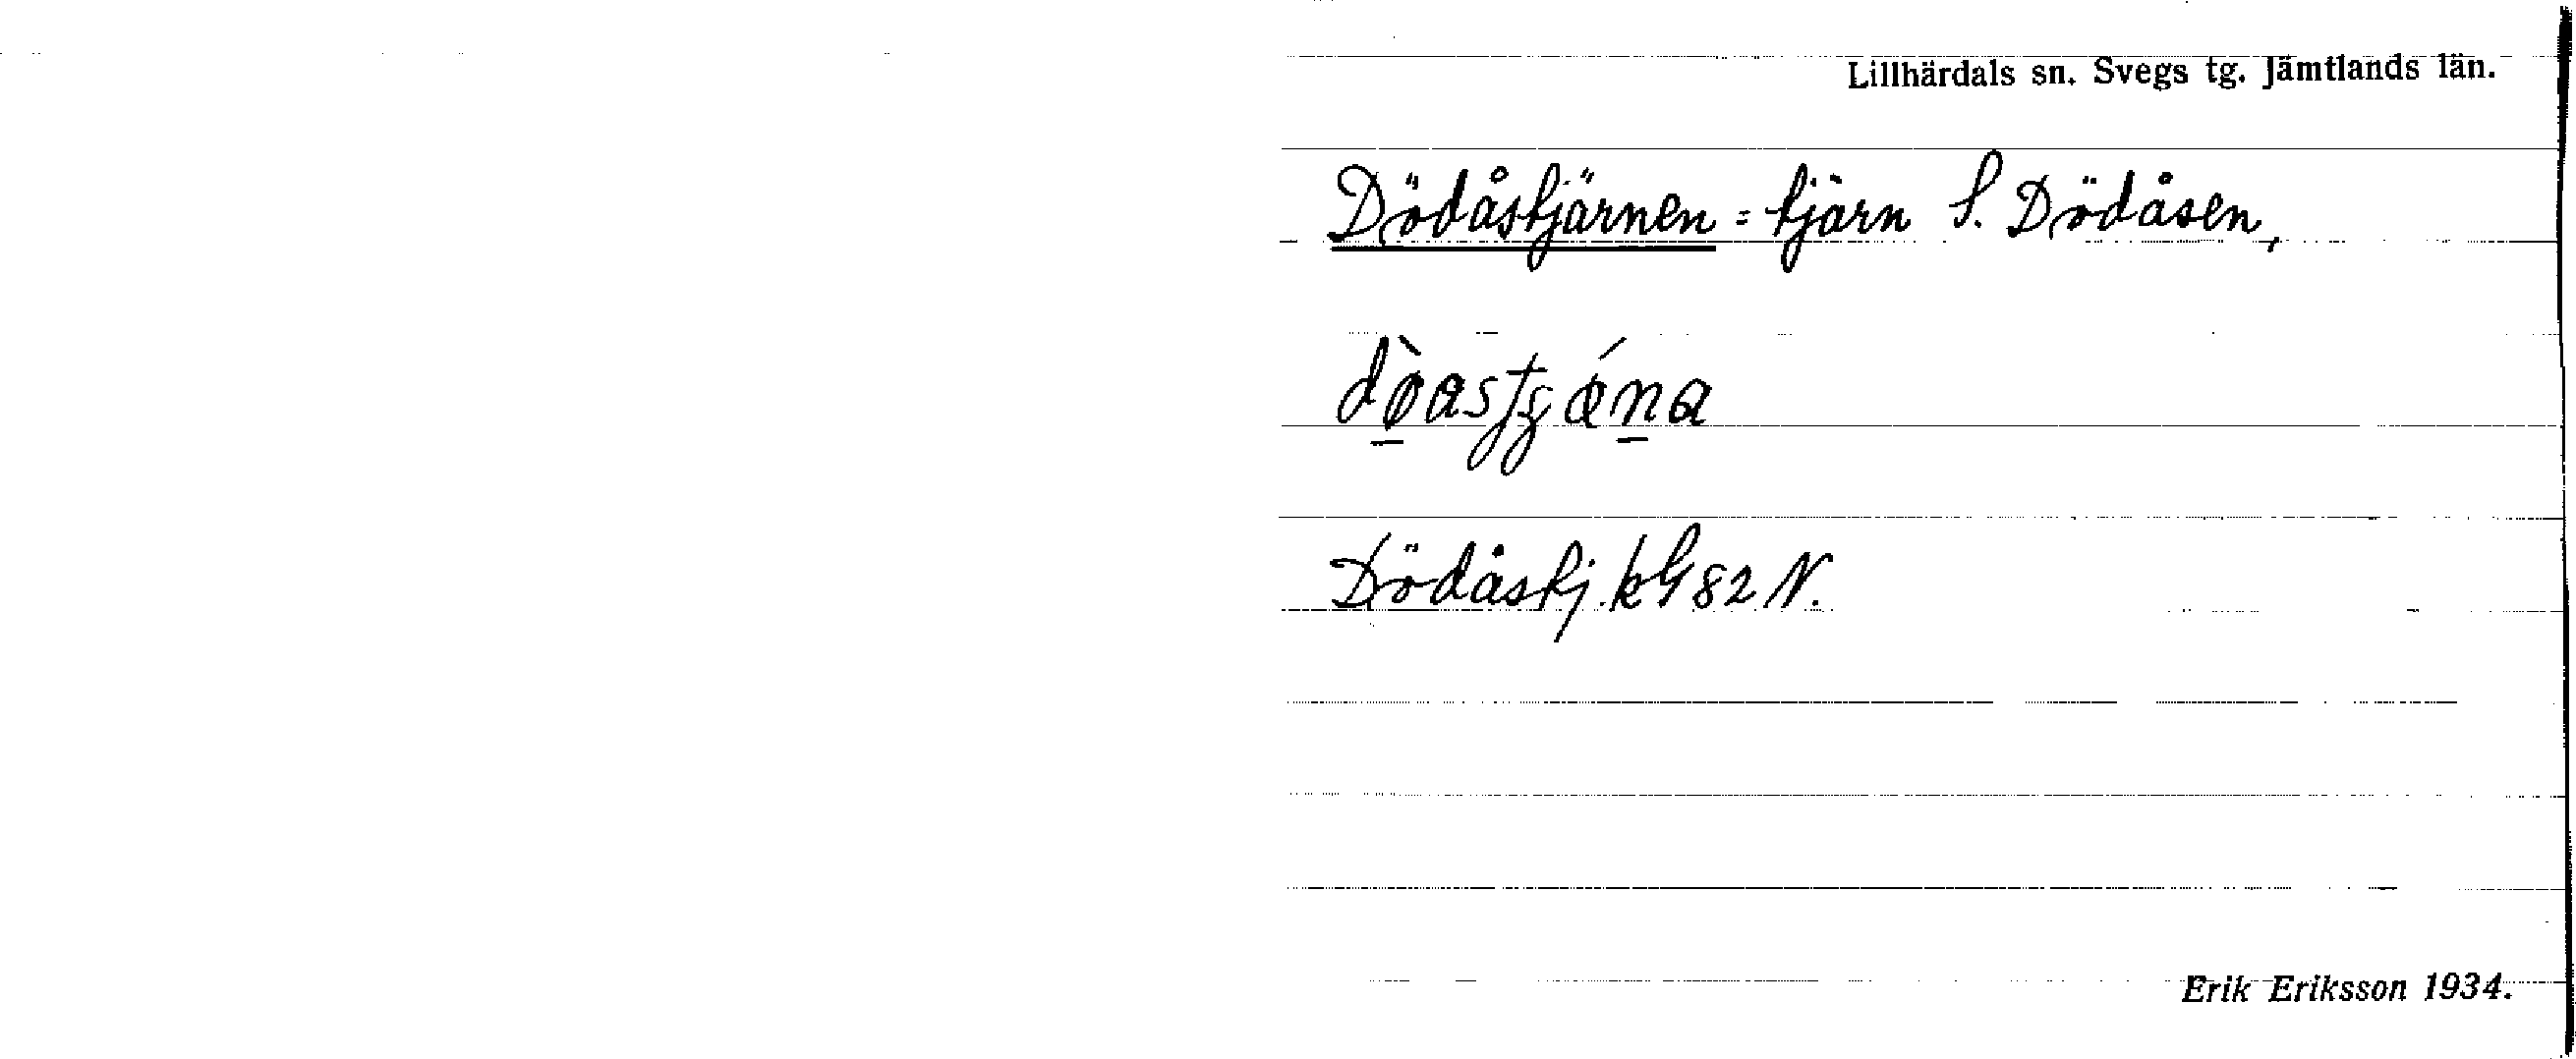 Lillhärdals sn. Svegs tg. Jämtlands län.
Dödåstjärnen = tjärn S. Dödåsen,
Dödåstj. kG 82 N.
Erik Eriksson 1934.